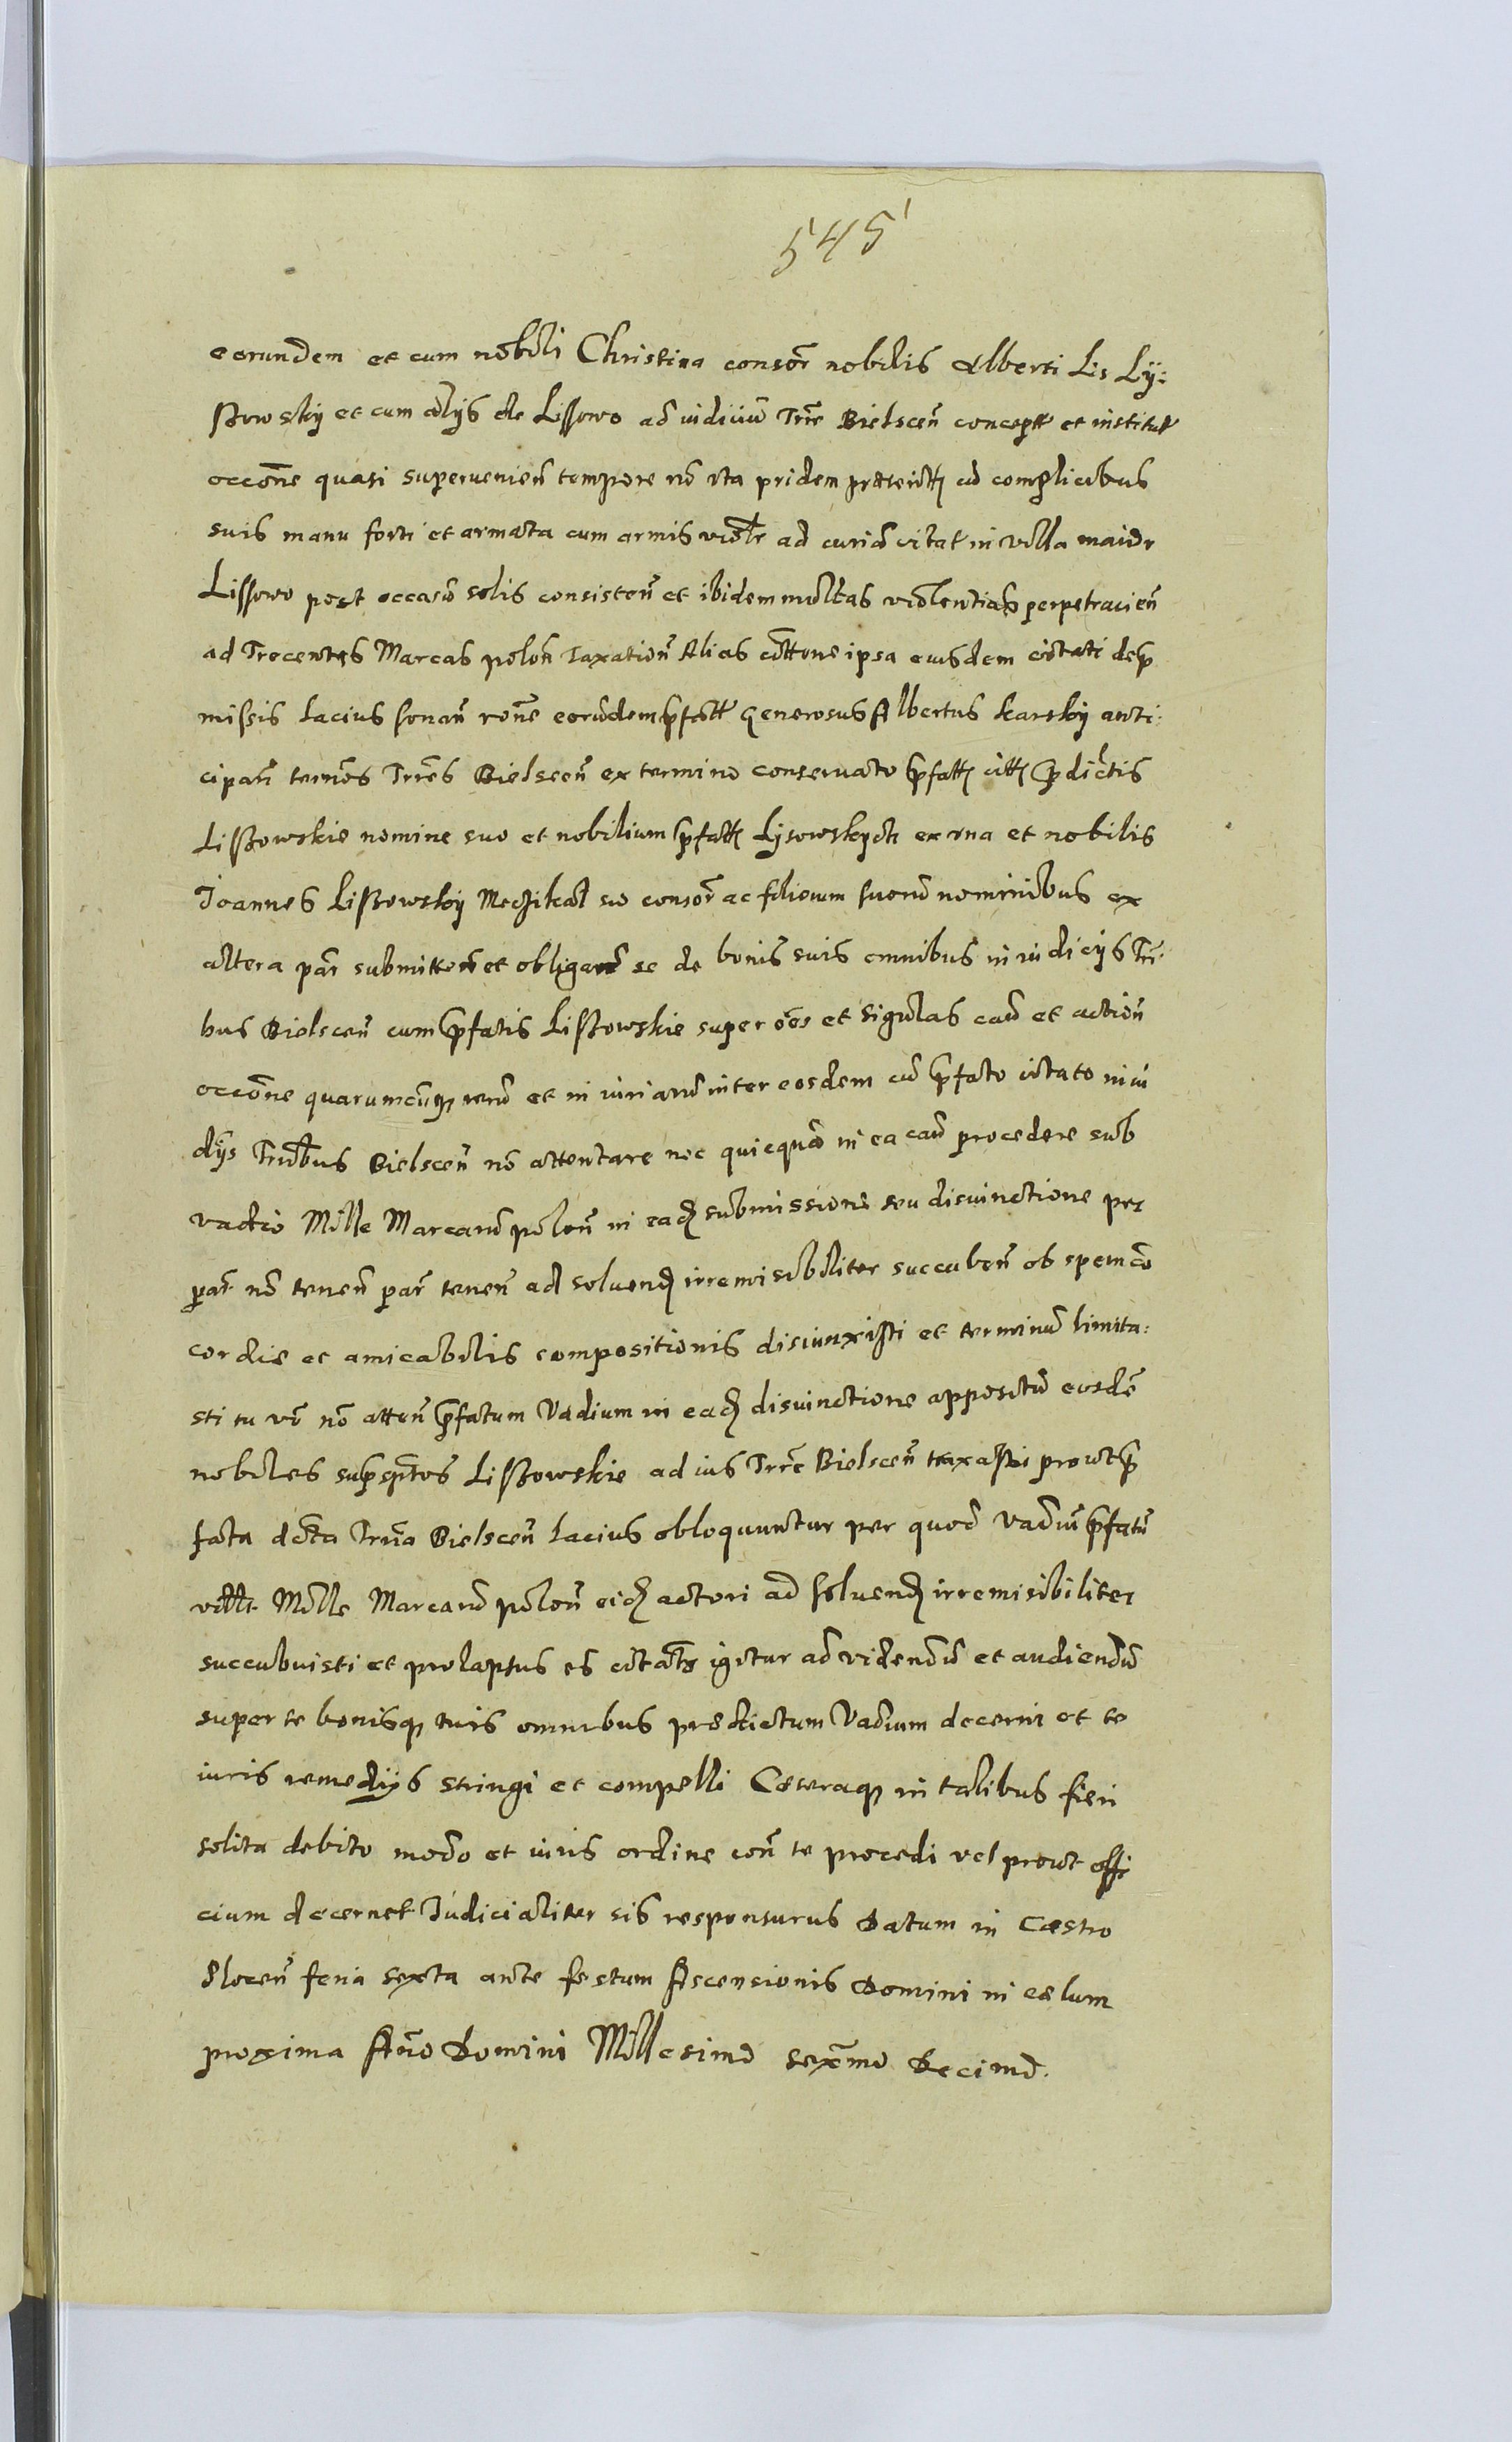 545
eorundem et cum nobili Christina consor nobilis Alberti Lis Lÿ:
ssowskÿ et cum alijs de Lissowo ad iudiciū Trre Bielscen̄ concept et institut
occōne quasi superuenien̄ tempore nō ita pridem præterit cū complicibus
suis manu forti et armata cum armis violtr ad curiā citat in villa maior
Lissowo post occasū solis consisten̄ et ibidem multas violentias perpetracien̄
ad Trecentas Marcas polon̄ Taxation̄ Alias cittone ipsa eiusdem citati de p
missis Lacius sonan̄ rōne eorūdem pfatt generosus Albertus karskÿ anti:
cipan̄ termos Trres Bielscen̄ ex termino conseruato pfatt citt pdictis
Lissowskie nomine suo et nobilium pfatt Lÿsowskÿch ex vna et nobilis
Joannes Lissowskÿ Meczikal suo consor ac filiorum suorū nominibus ex
altera par submitten̄ et obligan̄ se de bonis suis omnibus in iudicijs Trr.
bus Bielscen̄ cum pfatis Lissowskie super oēs et singulas caūs et action̄
occōne quarumcūq rerū et iniuriarū inter eosdem cū pfato citato in iu
dijs Trribus Bielscen̄ nō attentare nec quicquā in ea caū procedere sub
vadio Mille Marcarū polon̄ in eadꝫ submissione seu disiunctione per
par nō tenen̄ par tenen̄ ad soluendꝫ irremisibiliter succuben̄ ob spem cō
cordie et amicabilis compositionis disiunxisti et terminū limita:
sti tu vō nō atten̄ pfatum Vadium in eadꝫ disiunctione appositū eosdē
nobiles supsptos Lissowskie ad ius Trre Bielscen̄ traxasti prout p
fata acta Trria Bielscen̄ Lacius obloquuntur per quod vadiū pfatū
vidlt Mille Marcarū polon̄ eidꝫ actori ad soluendꝫ irremisibiliter
succubuisti et prolapsus es citats igitur ad videndū et audiendū
super te bonisq tuis omnibus prædictum Vadium decerni et te
iuris remedijs stringi et compelli Cæteraq in talibus fieri
solita debito modo et iuris ordine con̄ te procedi vel prout offi
cium decernet Judicialiter sis responsurus Datum in Castro
Plocen̄ feria sexta ante festum Ascensionis Domini in cælum
proxima Anō Domini Millesimo sexmo Decimo.